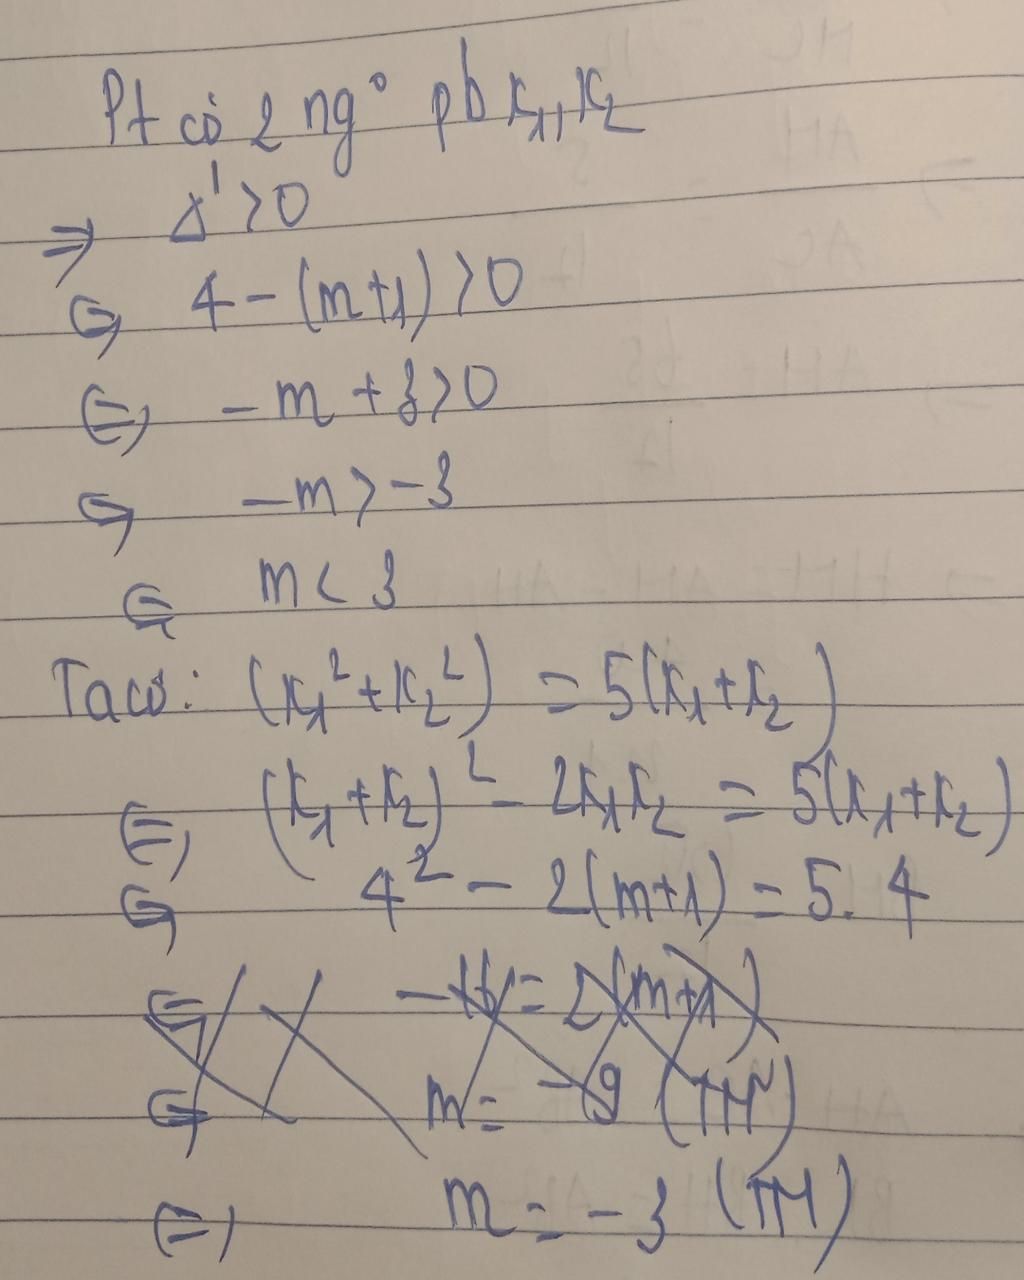 Pt có 2 ng° pb x₁, x₂
⇒ Δ' > 0
⇔ 4 - (m+1) > 0
⇔ -m + 3 > 0
⇔ -m > -3
⇔ m < 3
Ta có: (x₁² + x₂²) = 5(x₁ + x₂)
⇔ (x₁ + x₂)² - 2x₁x₂ = 5(x₁ + x₂)
⇔ 4² - 2(m+1) = 5.4
⇔ -16 = 2(m+1)
⇔ m = -9 (TM)
⇔ m = -3 (TM)